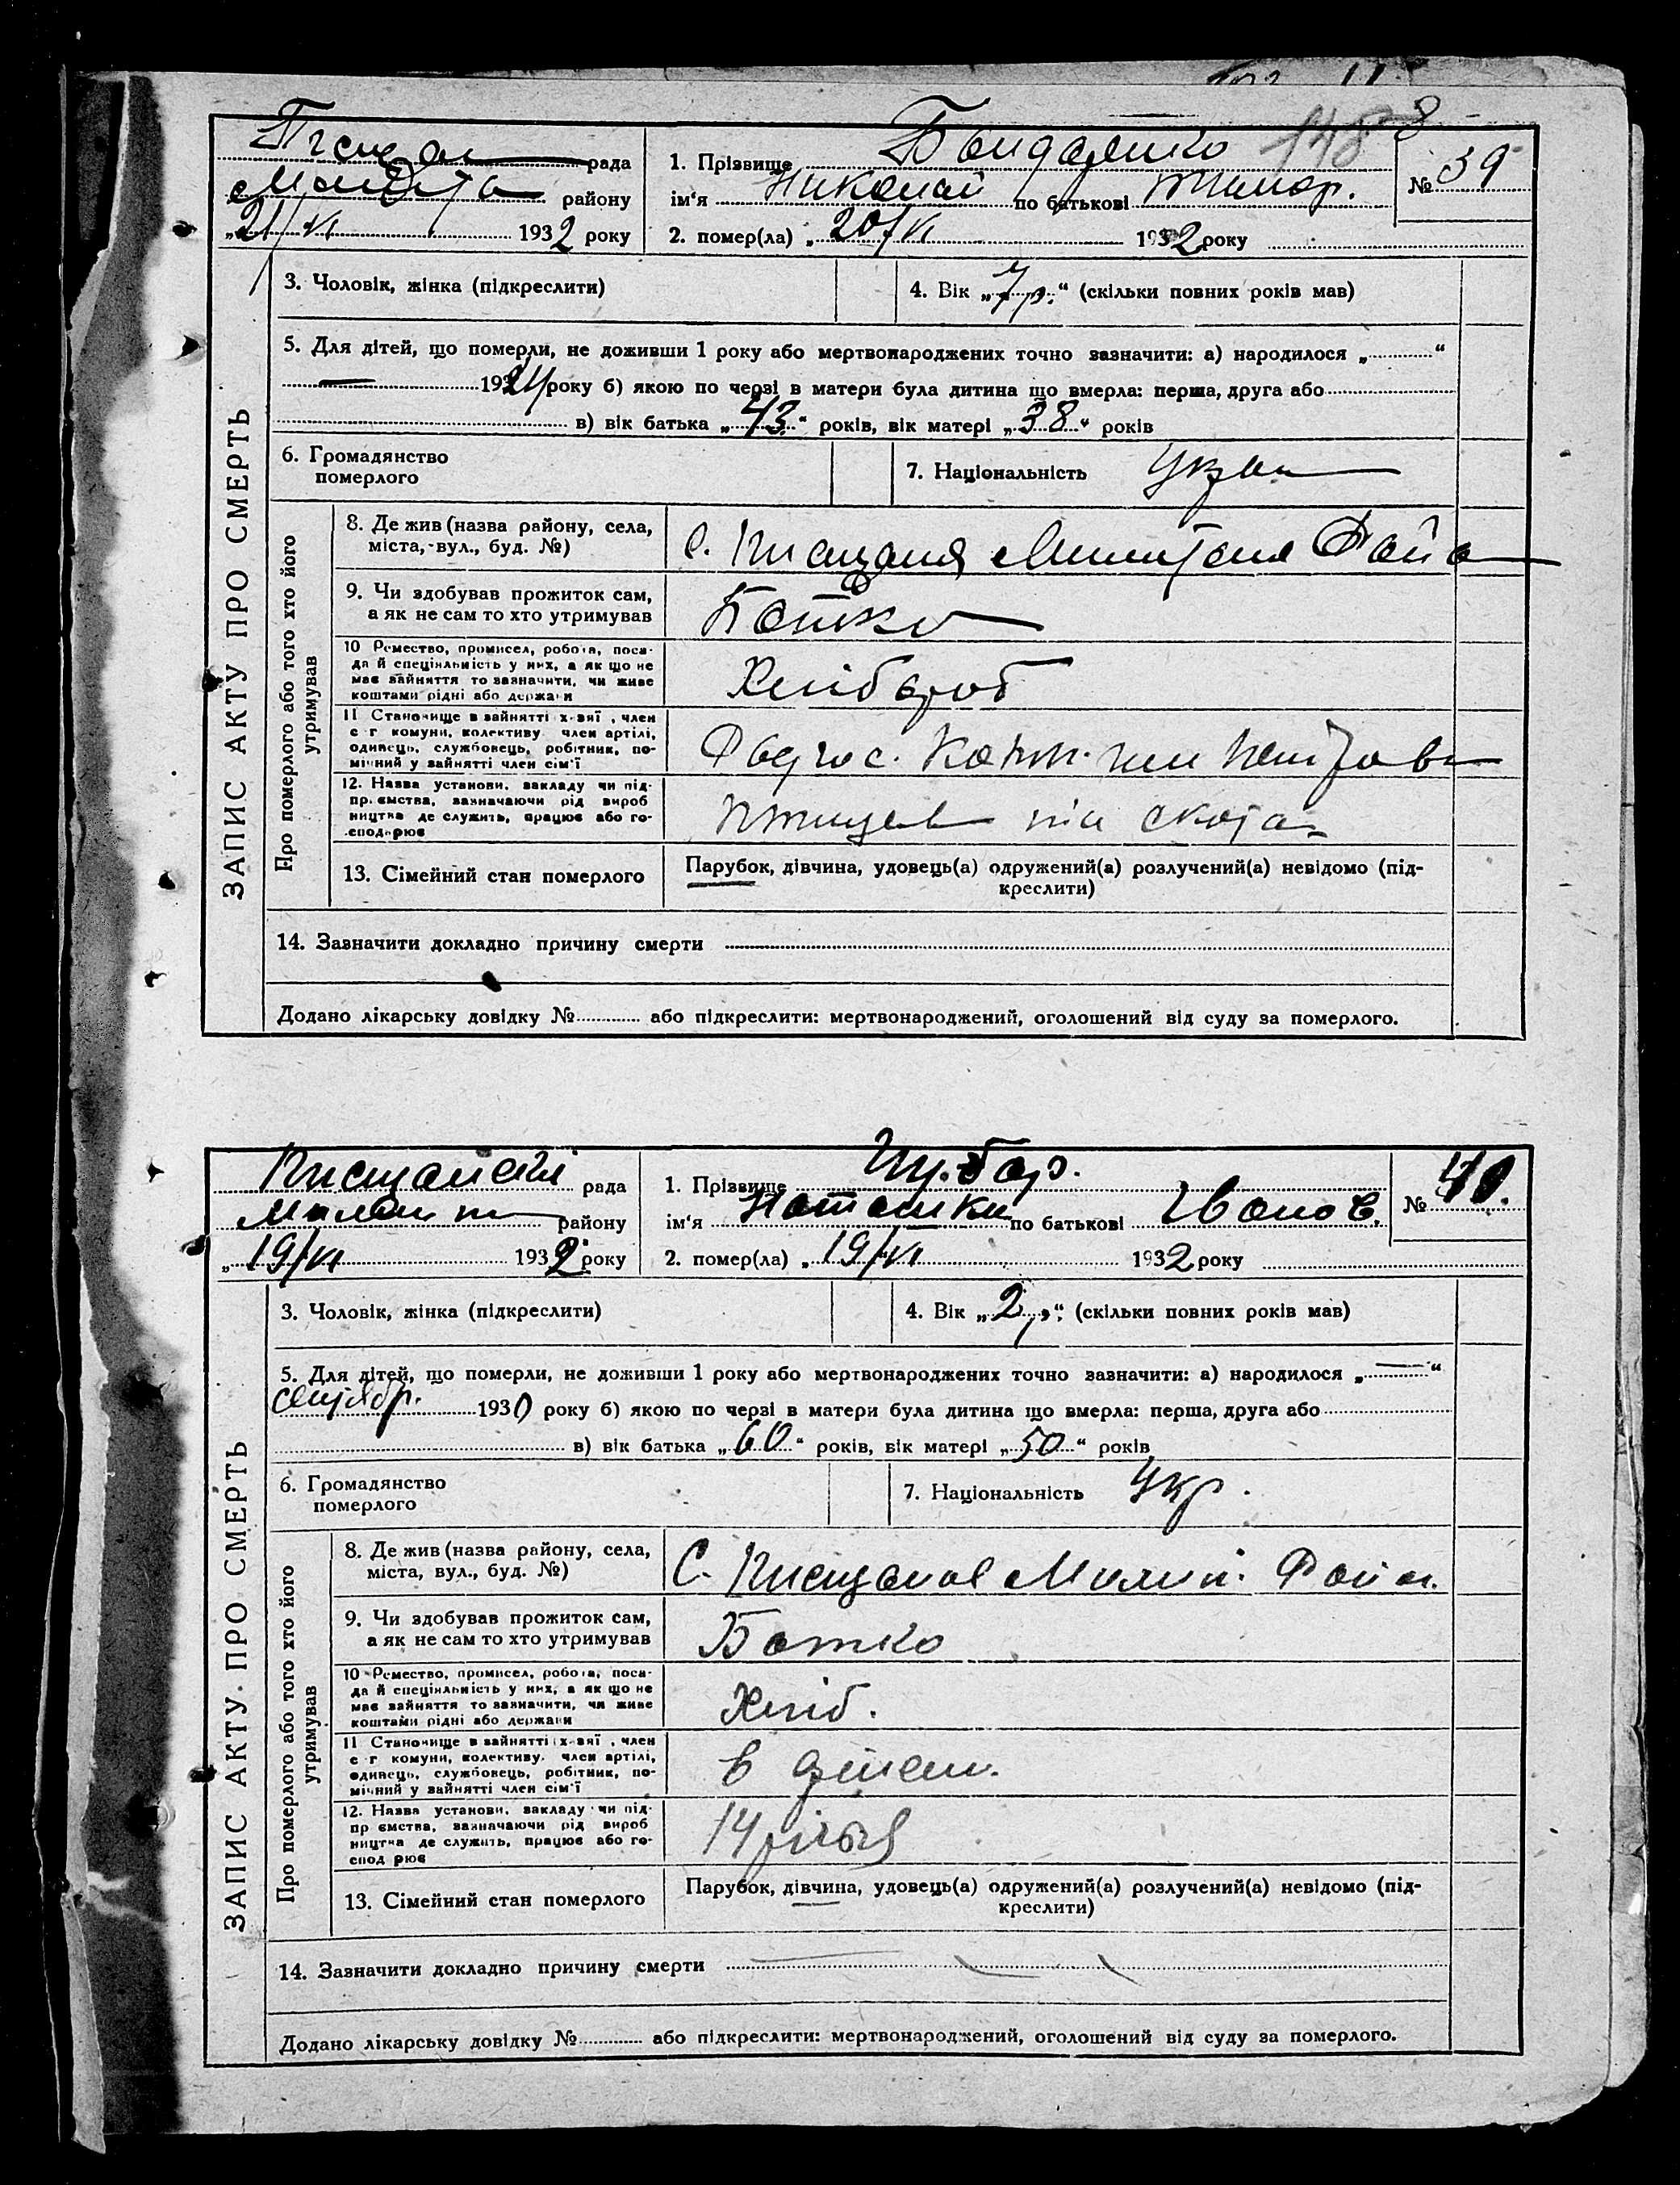 148 8
рада
1. Прізвище Бондаренко
№ 39
району
ім'я Николай по батькові Тимор.
„21/VI 1932 року
2. помер(ла) „20/VI 1932 року
ЗАПИС АКТУ ПРО СМЕРТЬ
3. Чоловік, жінка (підкреслити)
4. Вік „7р.“ (скільки повних років мав)
5. Для дітей, що померли, не доживши 1 року або мертвонароджених точно зазначити: а) народилося „ “
— 1924 року б) якою по черзі в матери була дитина що вмерла: перша, друга або
в) вік батька „43“ років, вік матері „38“ років
6. Громадянство
померлого
7. Національність Укра
Про померлого або того хто його
утримував
8. Де жив (назва району, села,
міста, вул., буд. №)
с.
9. Чи здобував прожиток сам,
а як не сам то хто утримував
Батько
10 Ремество, промисел, робота, поса-
да й спеціяльність у них, а як що не
має зайняття то зазначити, чи живе
коштами рідні або держави
Хлібороб
11 Становище в зайнятті х-вяї, член
с г комуни, колективу член артілі,
одинець, службовець, робітник, по-
мічний у зайнятті член сім'ї
12. Назва установи, закладу чи під-
пр.ємства, зазначаючи рід вироб
ництва де служить, працює або го-
сподарює
13. Сімейний стан померлого
Парубок, дівчина, удовець(а) одружений(а) розлучений(а) невідомо (під-
креслити)
14. Зазначити докладно причину смерти
Додано лікарську довідку № або підкреслити: мертвонароджений, оголошений від суду за померлого.
рада
1. Прізвище
№ 40.
району
ім'я по батькові Іванов.
„19/VI 1932 року
2. помер(ла) „19/VI 1932 року
ЗАПИС АКТУ ПРО СМЕРТЬ
3. Чоловік, жінка (підкреслити)
4. Вік „2р.“ (скільки повних років мав)
5. Для дітей, що померли, не доживши 1 року або мертвонароджених точно зазначити: а) народилося „—“
1930 року б) якою по черзі в матери була дитина що вмерла: перша, друга або
в) вік батька „60“ років, вік матері „50“ років
6. Громадянство
померлого
7. Національність Укр.
Про померлого або того хто його
утримував
8. Де жив (назва району, села,
міста, вул., буд. №)
С.
9. Чи здобував прожиток сам,
а як не сам то хто утримував
Батько
10 Ремество, промисел, робота, поса-
да й спеціяльність у них, а як що не
має зайняття то зазначити, чи живе
коштами рідні або держави
Хліб.
11 Становище в зайнятті х-вяї, член
с г комуни, колективу член артілі,
одинець, службовець, робітник, по-
мічний у зайнятті член сім'ї
12. Назва установи, закладу чи під-
пр ємства, зазначаючи рід вироб
ництва де служить, працює або го-
спод рює
13. Сімейний стан померлого
Парубок, дівчина, удовець(а) одружений(а) розлучений(а) невідомо (під-
креслити)
14. Зазначити докладно причину смерти
Додано лікарську довідку № або підкреслити: мертвонароджений, оголошений від суду за померлого.